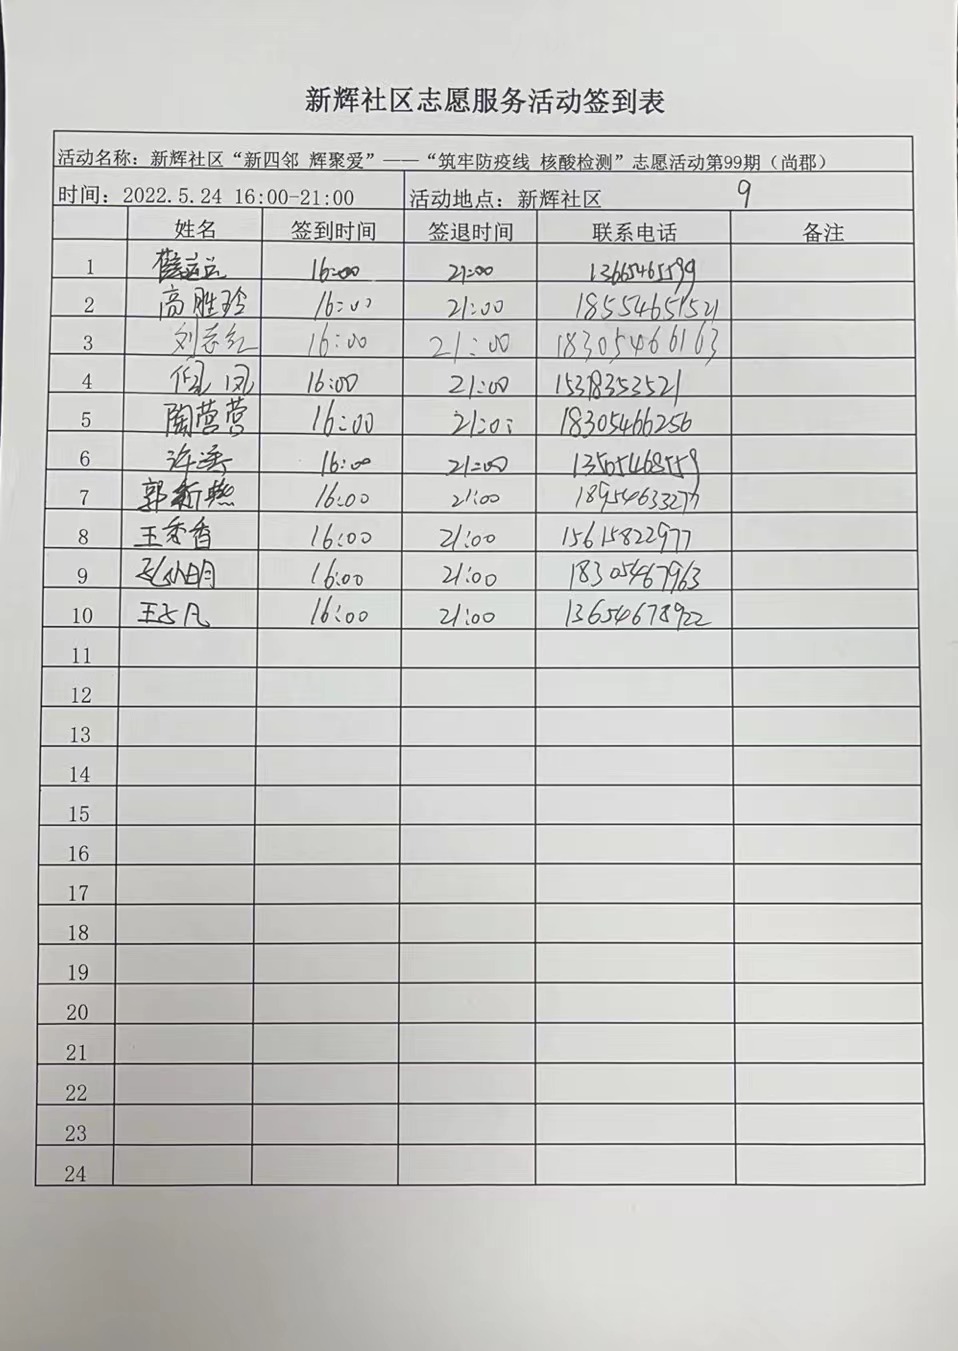 新辉社区志愿服务活动签到表
活动名称：新辉社区“新四邻 辉聚爱”——“筑牢防疫线 核酸检测”志愿活动第99期（尚郡）
时间：2022.5.24 16:00-21:00 活动地点：新辉社区 9
姓名 签到时间 签退时间 联系电话 备注
1 16:00 21:00 13665465599
2 高胜玲 16:00 21:00 18554651521
3 刘志红 16:00 21:00 18305466163
4 16:00 21:00 15318353521
5 陶营营 16:00 21:00 18305466256
6 许涛 16:00 21:00 13505468559
7 郭新燕 16:00 21:00 18954633277
8 王秀香 16:00 21:00 15615822977
9 16:00 21:00 18305467963
10 16:00 21:00 13654678922
11
12
13
14
15
16
17
18
19
20
21
22
23
24